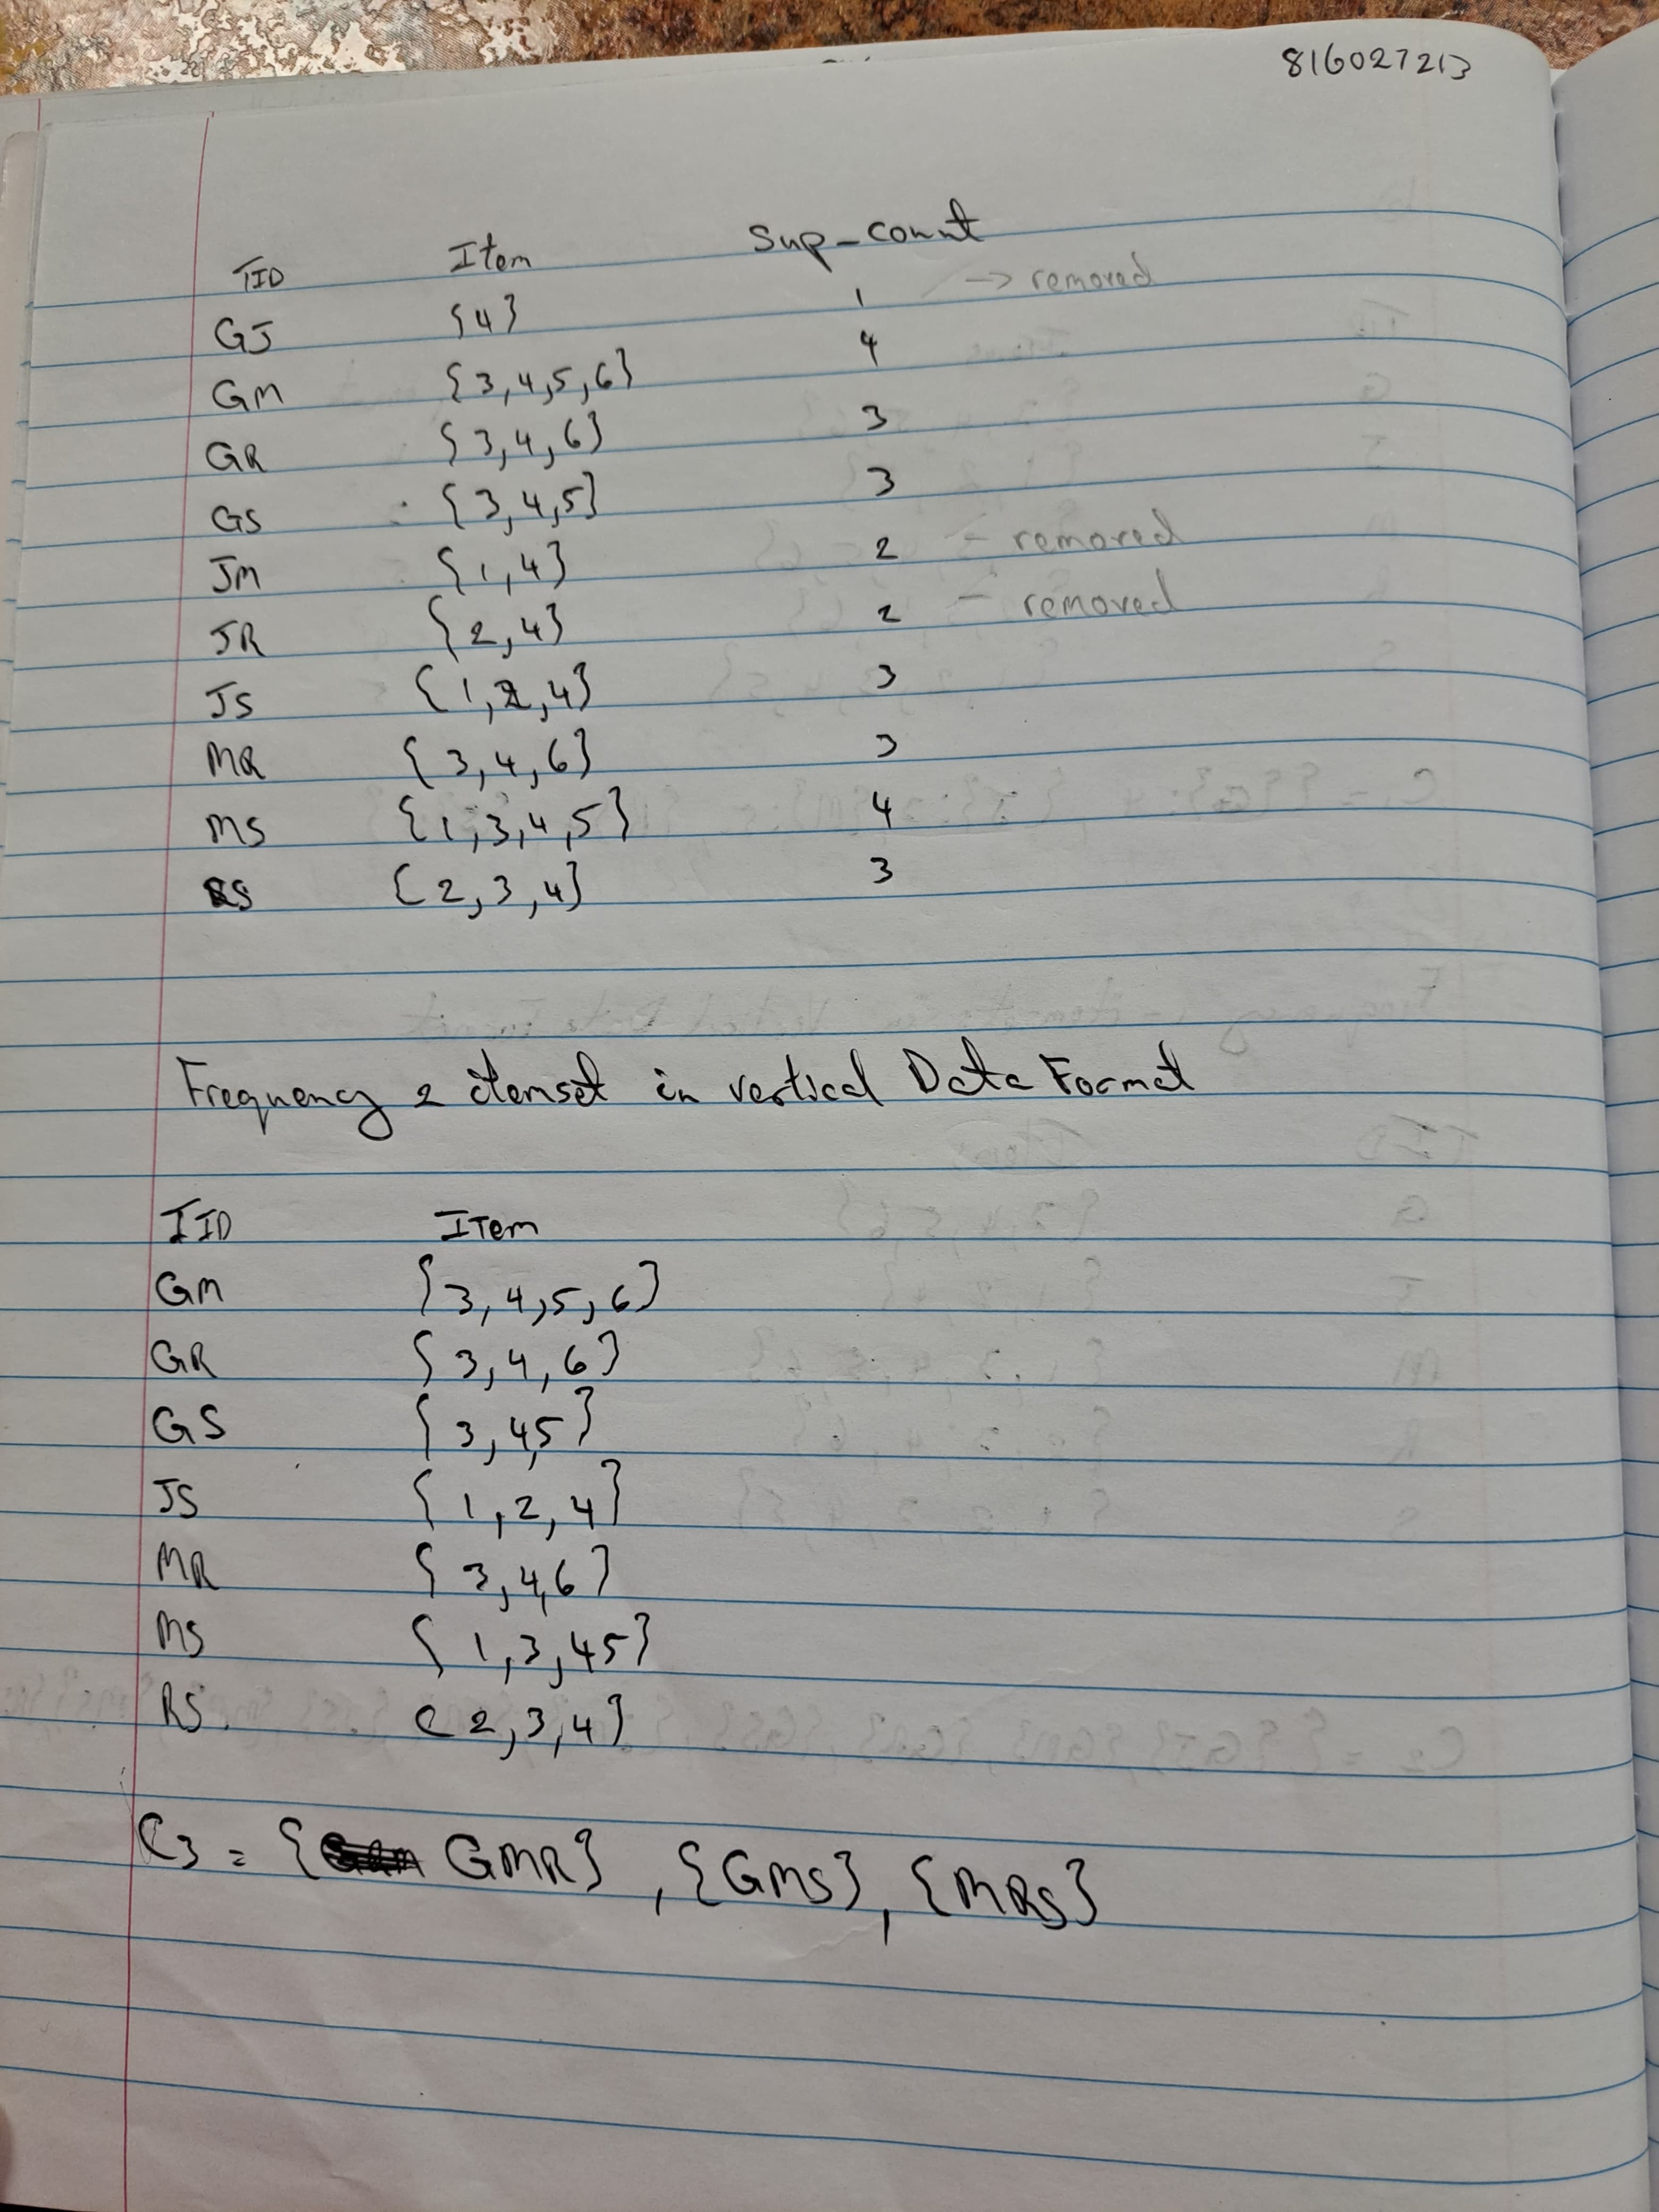 816027213
TID Item Sup_count
GJ {4} 1 → removed
GM {3,4,5,6} 4
GR {3,4,6} 3
GS {3,4,5} 3
JM {1,4} 2 - removed
JR {2,4} 2 - removed
JS {1,2,4} 3
MR {3,4,6} 3
MS {1,3,4,5} 4
RS {2,3,4} 3
Frequency 2 itemset in vertical Data Format
TID ITem
GM {3,4,5,6}
GR {3,4,6}
GS {3,4,5}
JS {1,2,4}
MR {3,4,6}
MS {1,3,4,5}
RS {2,3,4}
C3 = {GMR}, {GMS}, {MRS}